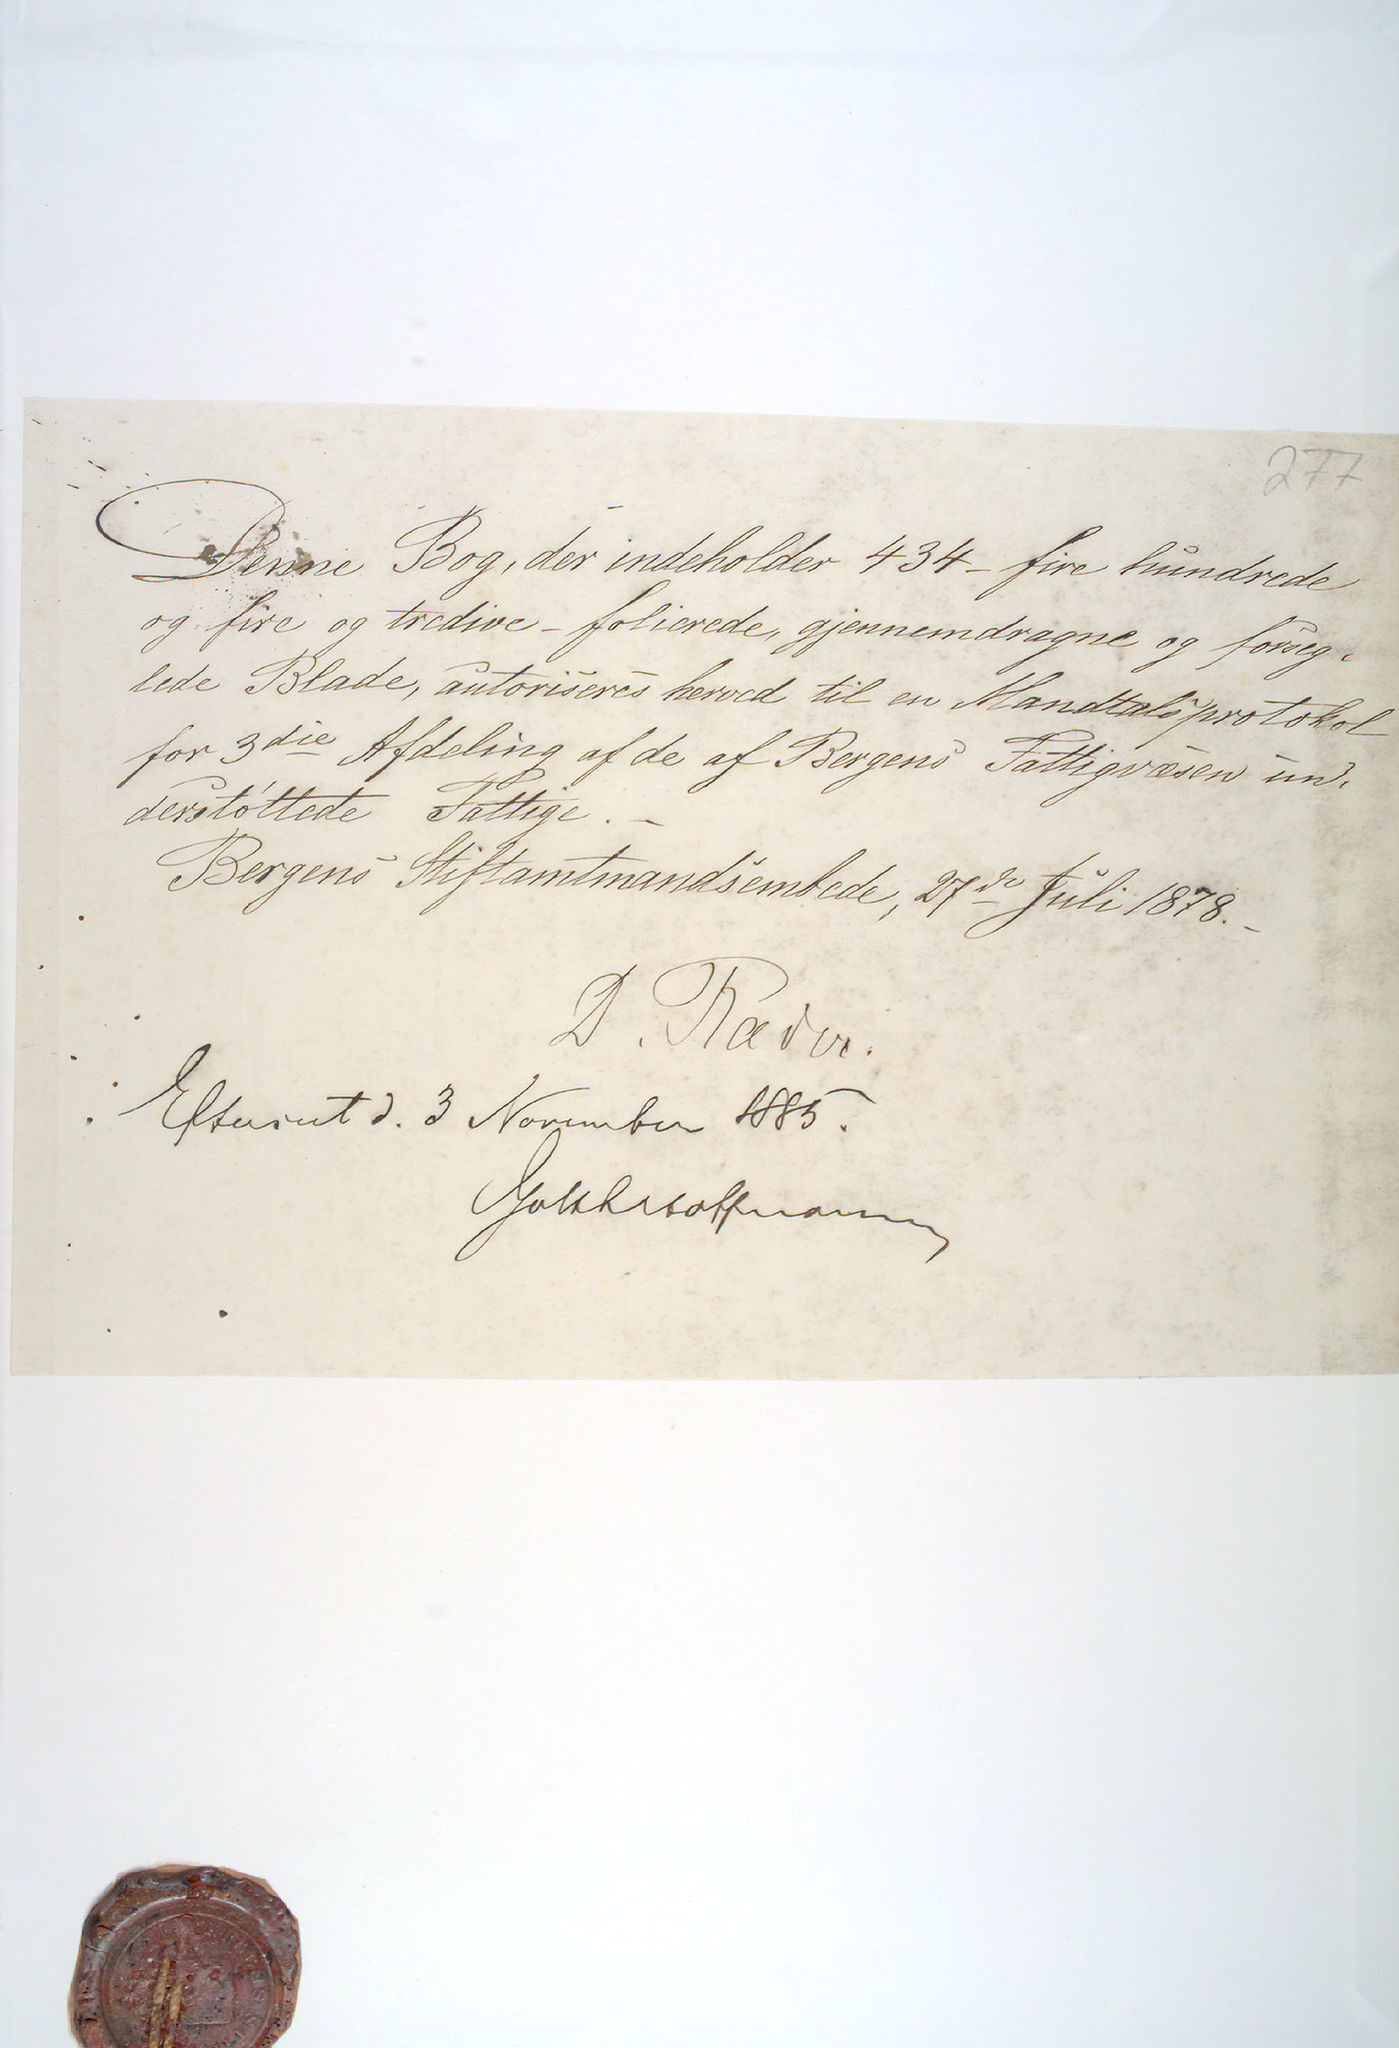 277
Denne Bog, der indeholder 434 - fire hundrede
og fire og tredive - folierede, gjennemdragne og forseg-
lede Blade, autoriseres herved til en Mandtalsprotokol
for 3die Afdeling af de af Bergens Fattigvæsen un-
derstøttede Fattige. -
Bergens Stiftamtmandsembede, 27de Juli 1878. -
D. Ræder.
Efterseet d. 3 November 1885.